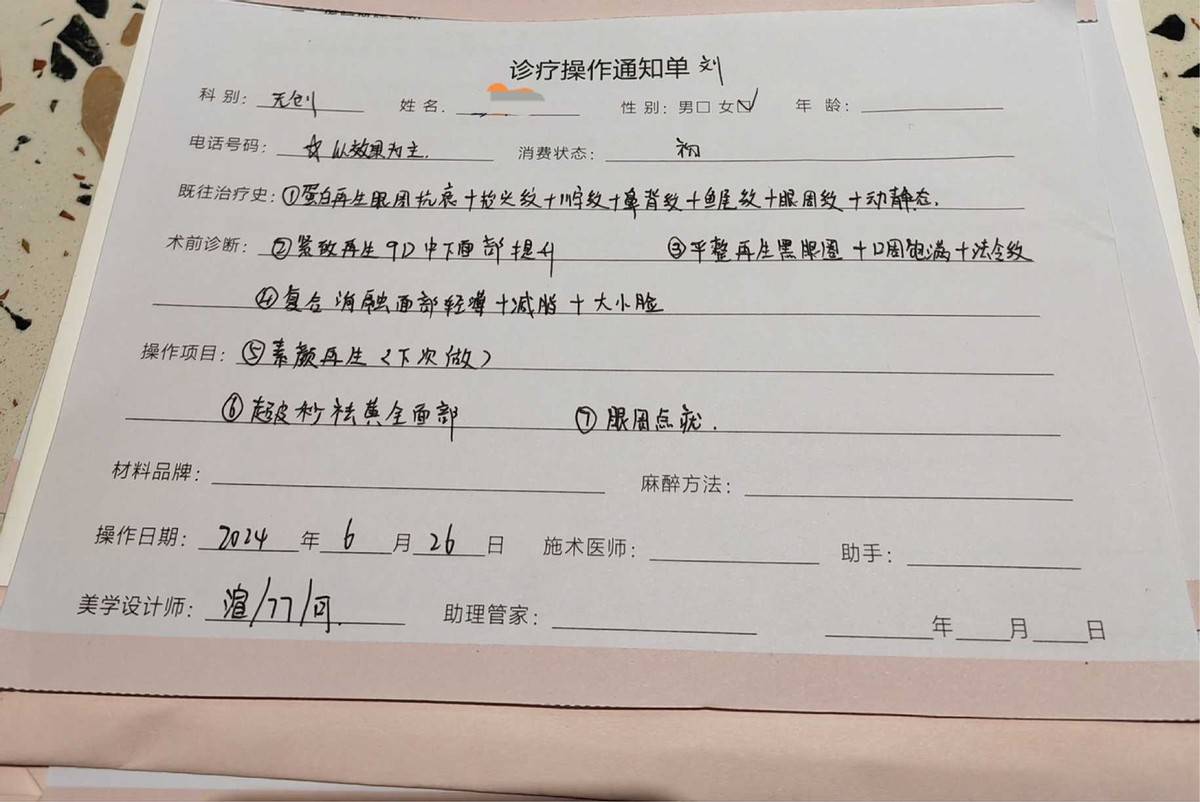 诊疗操作通知单 刘
科别: 无创 姓名. 性别: 男□ 女☑ 年龄:
电话号码: 以效果为主. 消费状态: 初
既往治疗史: ①蛋白再生眼周抗衰+抬头纹+川字纹+鼻背纹+鱼尾纹+眼周纹+动静态.
术前诊断: ②紧致再生9D中下面部提升 ③平整再生黑眼圈+口周饱满+法令纹
④复合溶融面部轮廓+减脂+大小脸
操作项目: ⑤素颜再生(下次做)
⑥超皮秒祛黄全面部 ⑦眼周点疣.
材料品牌: 麻醉方法:
操作日期: 2024年6月26日 施术医师: 助手:
美学设计师: 渲/77/可. 助理管家: 年 月 日